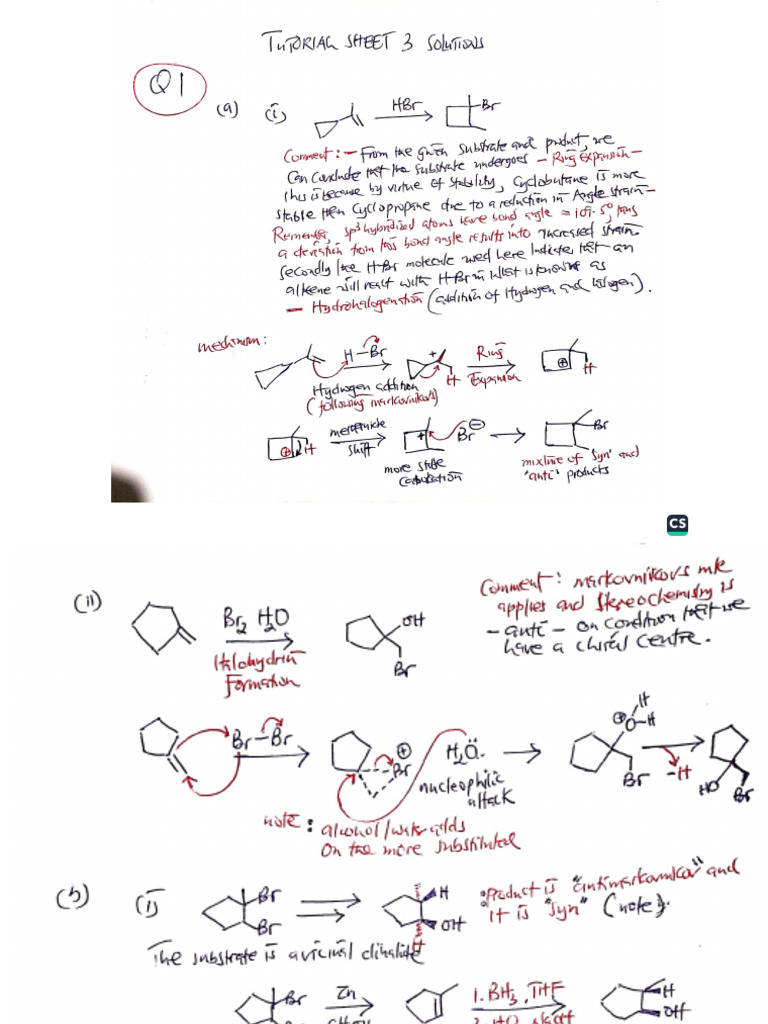 TUTORIAL SHEET 3 SOLUTIONS
Q1
(a) (i) HBr Br
Comment: - From the given substrate and product, we
can conclude that the substrate undergoes - Ring Expansion -
This is because by virtue of stability, cyclobutane is more
stable than cyclopropane due to a reduction in Angle strain -
Remember, sp3 hybridized atoms have bond angle = 109.5°, thus
a deviation from this bond angle results into increased strain.
secondly, the HBr molecule used here indicates that an
alkene will react with HBr in what is known as
- Hydrohalogenation (addition of Hydrogen and halogen).
mechanism:
H-Br + H Ring Expansion + H
Hydrogen addition
(following markovnikovs)
+ H shift + Br ⊖ Br
more stable
carbocation
mixture of "syn" and
"anti" products
CS
(ii) Br2 H2O OH Br
Halohydrin
Formation
Comment: markovnikovs rule
applies and stereochemistry is
- anti - on condition that we
have a chiral centre.
Br-Br ⊕ Br H2Ö. H ⊕O-H Br -H HO Br
nucleophilic
attack
note: alcohol/water adds
on the more substituted
(b) (i) Br Br H OH H
Product is "antimarkovnikov" and
it is "syn" (note).
The substrate is a vicinal dihalide
Br Zn 1. BH3, THF H OH